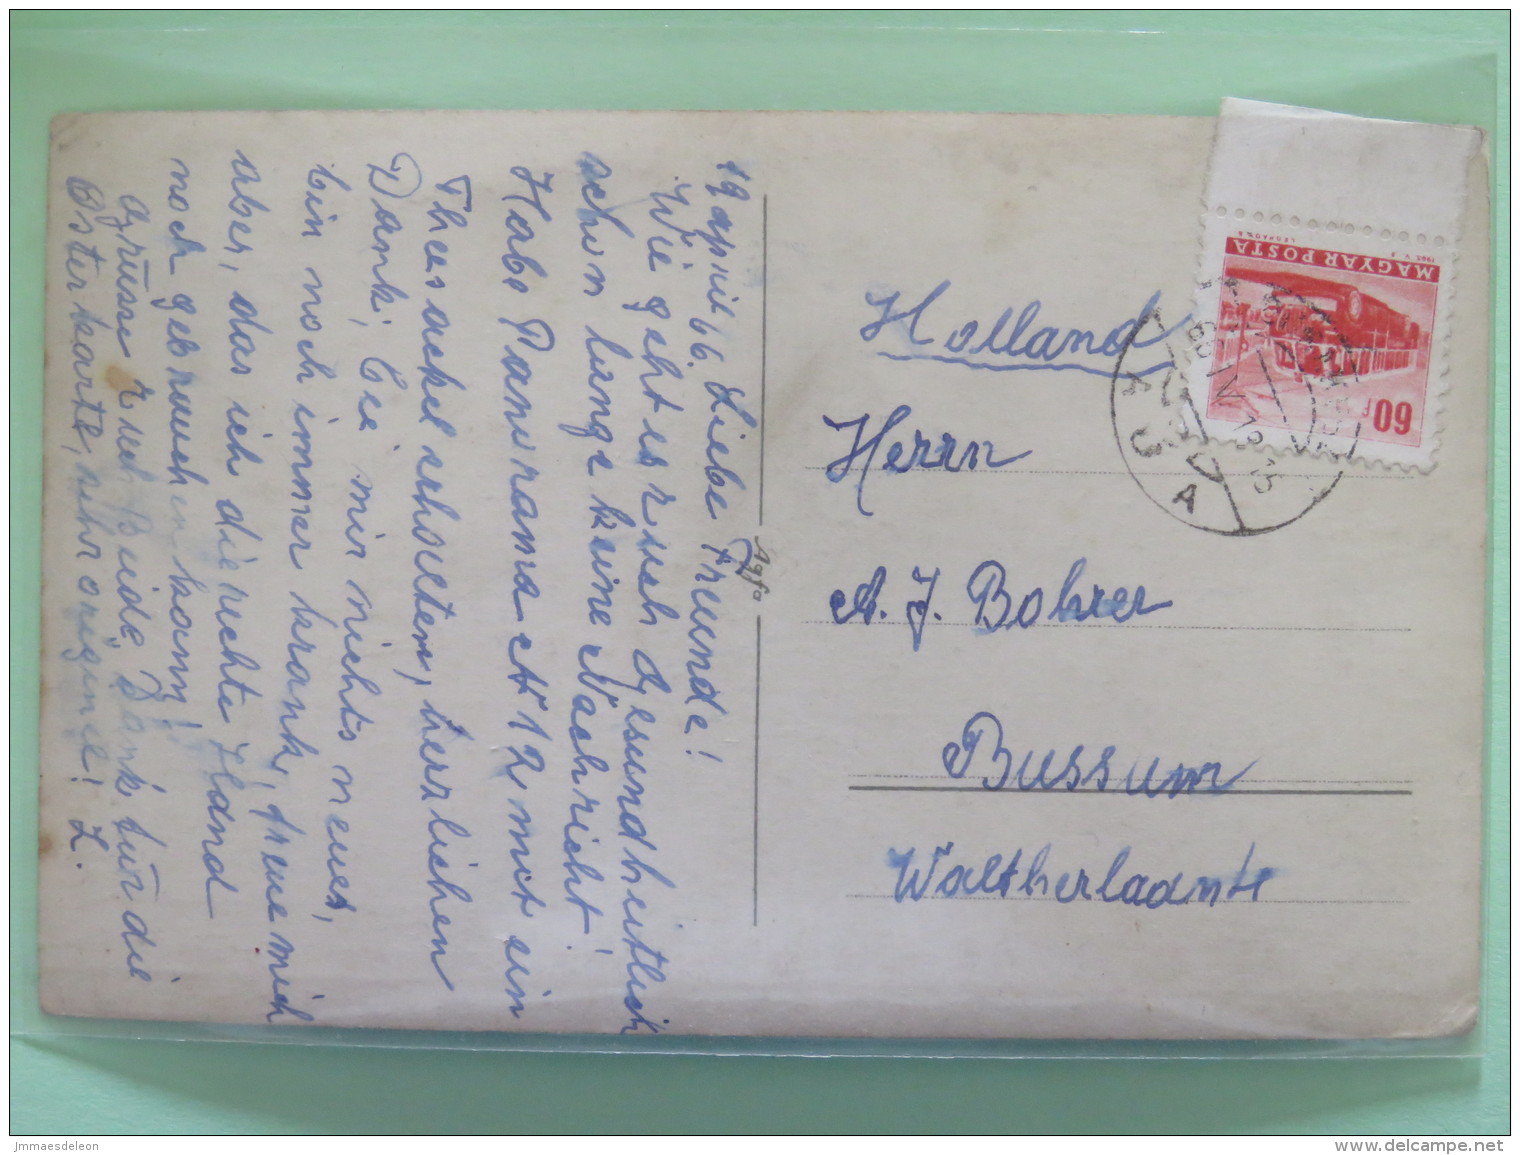 19 april 66. Liebe Freunde!
Wie geht es Euch Gesundheitlich
schon lange keine Nachricht.
Habe Panorama N 12 mit ein
Theesackel erhalten, herzlichen
Dank, bei mir nichts neues,
bin noch immer krank, freue mich
aber, das ich die rechte Hand
noch gebrauchen kann!
Grüsse Euch Beide, Dank für die
Osterkarte, sehr originel! L.
Agfa
Holland
Herrn
A. J. Bohrer
Bussum
MAGYAR POSTA
60 F
66 IV 18 15
A
Jmmaesdeleon
www.delcampe.net